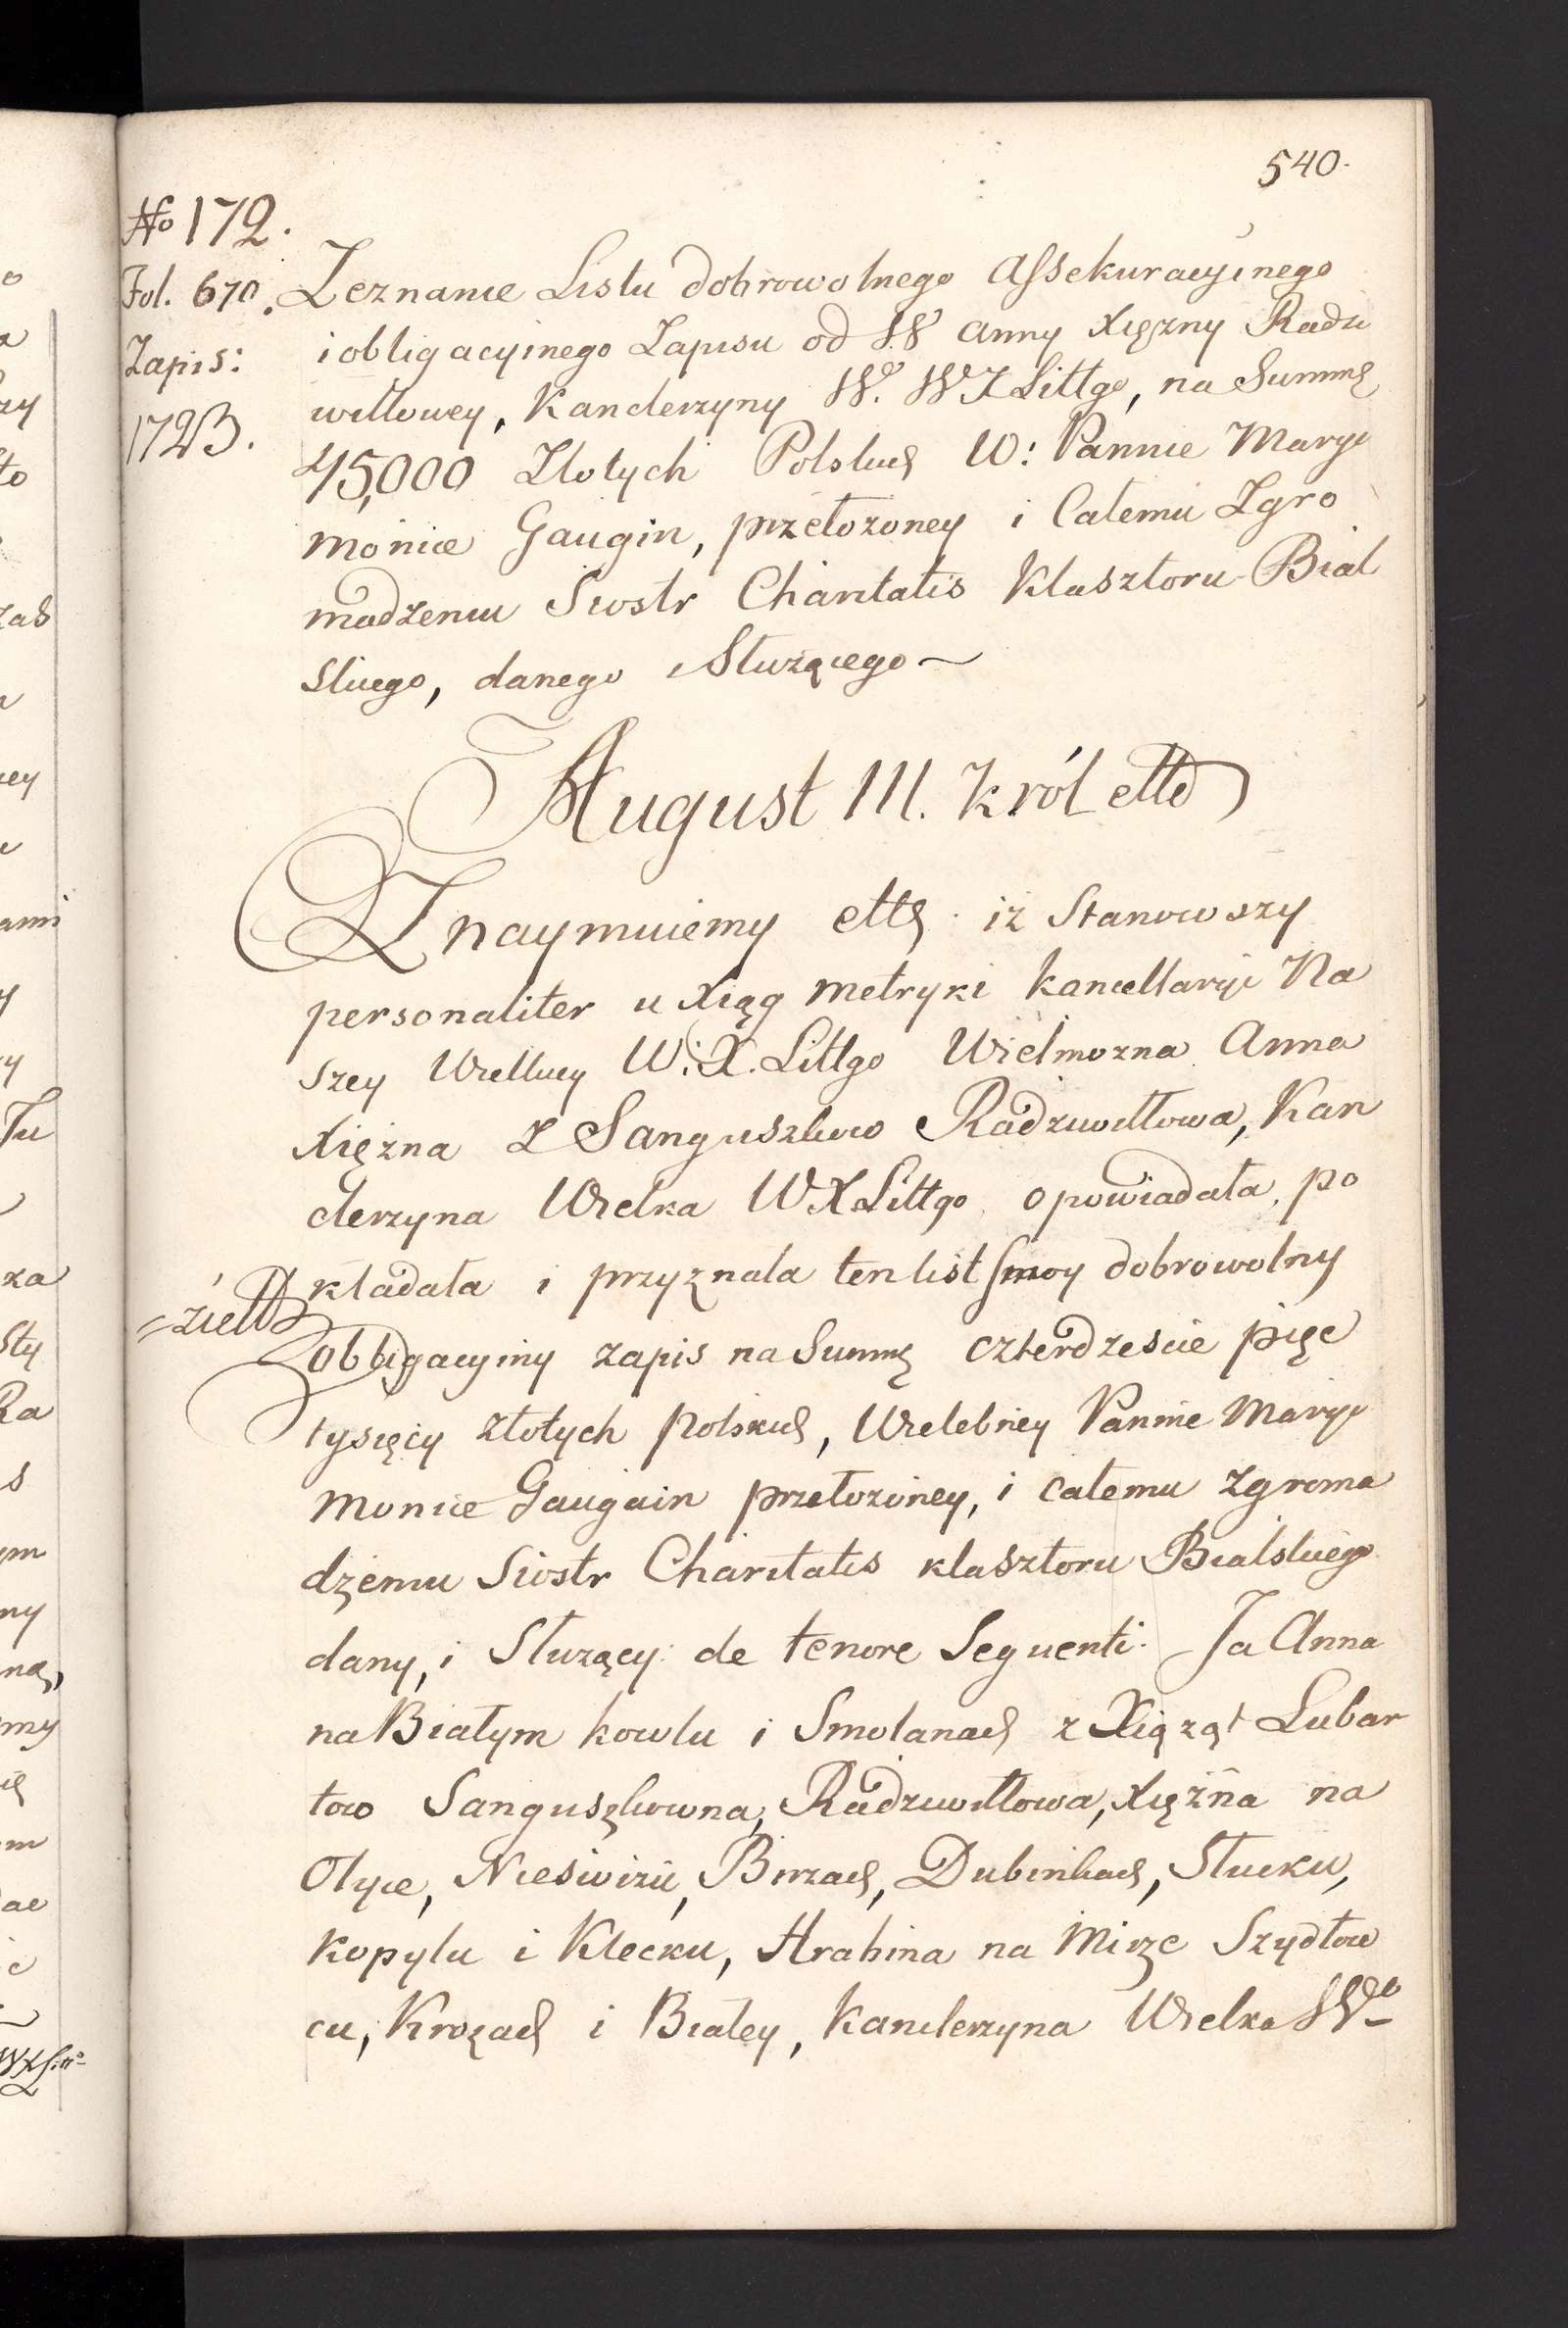 540.
No 172.
Fol. 670.
Zapis:
1723.
Zeznanie Listu dobrowolnego Assekuracyinego
i obligacyinego Zapisu od W Anny Xiężny Radzi
wiłłowey, Kanclerzyny W. W X Littgo, na Summę
45,000 Złotych Polskich W: Pannie Maryi
Monice Gaugin, przełożoney i Całemu Zgro
madzeniu Siostr Charitatis Klasztoru Bial
skiego, danego i Służącego
August III. Król ettc
Znaymuiemy ettc. iż Stanowszy
personaliter u Xiąg Metryki Kancellaryi Na
szey Wielkiey W: X. Littgo Wielmożna Anna
Xiężna z Sanguszkow Radziwiłłowa, Kan
clerzyna Wielka W X Littgo opowiadała, po
kładała i przyznała ten list swoy dobrowolny
obligacyiny zapis na Summę czterdzescie pięc
tysięcy złotych Polskich, Wielebney Pannie Maryi
Monice Gaugain przełożoney, i całemu zgroma
dzeniu Siostr Charitatis klasztoru Bialskiego
dany, i Służący: de tenore Sequenti. Ja Anna
na Białym kowlu i Smolanach z Xiążąt Lubar
tow Sanguszkowna, Radziwiłłowa, Xiężna na
Ołyce, Nieświżu, Birżach, Dubinkach, Słucku,
Kopylu i Klecku, Hrabina na Mirze Szydłow
cu, Krożach i Białey, Kanclerzyna Wielka W